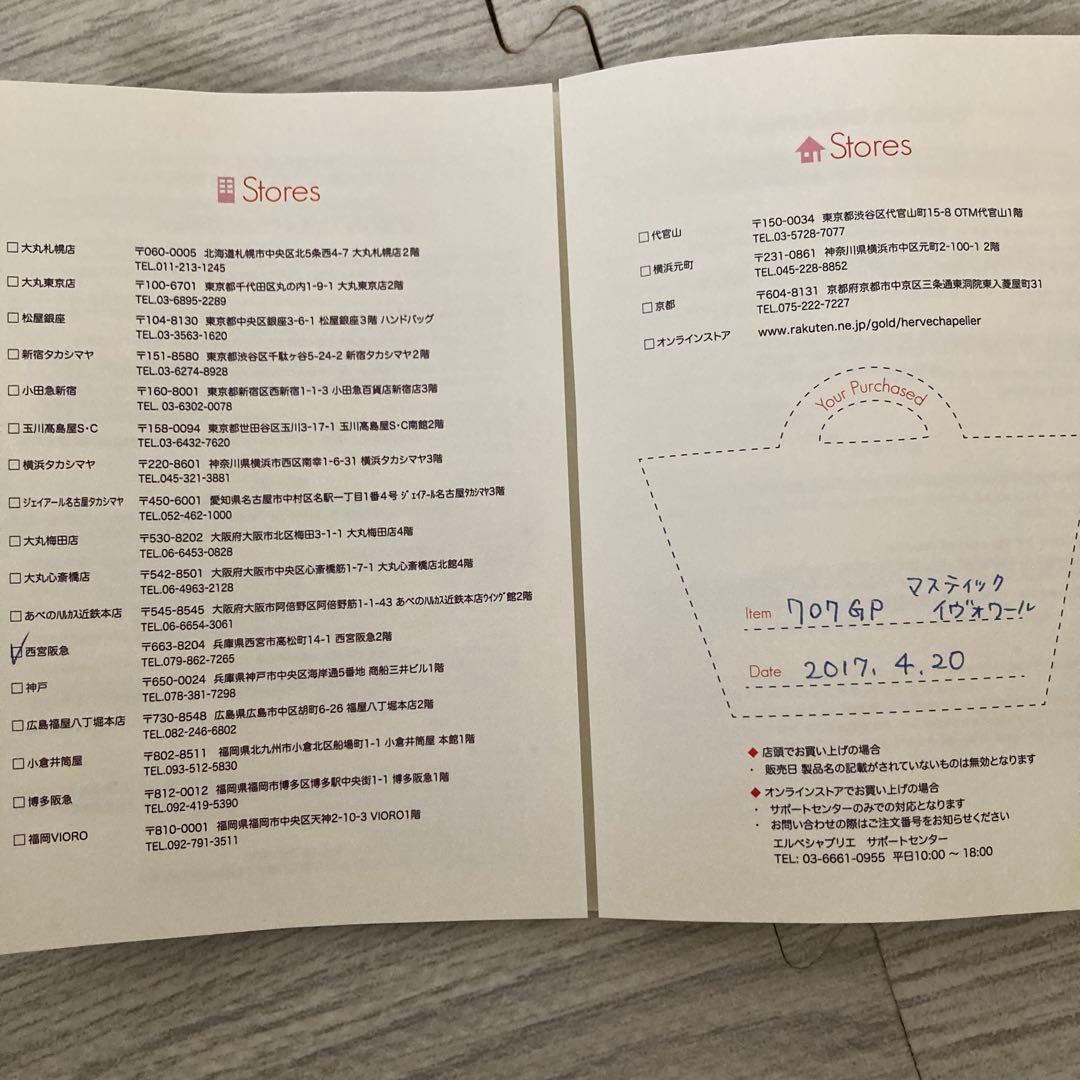 Stores
□ 大丸札幌店 〒060-0005 北海道札幌市中央区北5条西4-7 大丸札幌店2階
TEL.011-213-1245
□ 大丸東京店 〒100-6701 東京都千代田区丸の内1-9-1 大丸東京店2階
TEL.03-6895-2289
□ 松屋銀座 〒104-8130 東京都中央区銀座3-6-1 松屋銀座3階 ハンドバッグ
TEL.03-3563-1620
□ 新宿タカシマヤ 〒151-8580 東京都渋谷区千駄ヶ谷5-24-2 新宿タカシマヤ2階
TEL.03-6274-8928
□ 小田急新宿 〒160-8001 東京都新宿区西新宿1-1-3 小田急百貨店新宿店3階
TEL. 03-6302-0078
□ 玉川髙島屋S・C 〒158-0094 東京都世田谷区玉川3-17-1 玉川髙島屋S・C南館2階
TEL.03-6432-7620
□ 横浜タカシマヤ 〒220-8601 神奈川県横浜市西区南幸1-6-31 横浜タカシマヤ3階
TEL.045-321-3881
□ ジェイアール名古屋タカシマヤ 〒450-6001 愛知県名古屋市中村区名駅一丁目1番4号 ジェイアール名古屋タカシマヤ3階
TEL.052-462-1000
□ 大丸梅田店 〒530-8202 大阪府大阪市北区梅田3-1-1 大丸梅田店4階
TEL.06-6453-0828
□ 大丸心斎橋店 〒542-8501 大阪府大阪市中央区心斎橋筋1-7-1 大丸心斎橋店北館4階
TEL.06-4963-2128
□ あべのハルカス近鉄本店 〒545-8545 大阪府大阪市阿倍野区阿倍野筋1-1-43 あべのハルカス近鉄本店ウイング館2階
TEL.06-6654-3061
☑ 西宮阪急 〒663-8204 兵庫県西宮市高松町14-1 西宮阪急2階
TEL.079-862-7265
□ 神戸 〒650-0024 兵庫県神戸市中央区海岸通5番地 商船三井ビル1階
TEL.078-381-7298
□ 広島福屋八丁堀本店 〒730-8548 広島県広島市中区胡町6-26 福屋八丁堀本店2階
TEL.082-246-6802
□ 小倉井筒屋 〒802-8511 福岡県北九州市小倉北区船場町1-1 小倉井筒屋 本館1階
TEL.093-512-5830
□ 博多阪急 〒812-0012 福岡県福岡市博多区博多駅中央街1-1 博多阪急1階
TEL.092-419-5390
□ 福岡VIORO 〒810-0001 福岡県福岡市中央区天神2-10-3 VIORO1階
TEL.092-791-3511
Stores
□ 代官山 〒150-0034 東京都渋谷区代官山町15-8 OTM代官山1階
TEL.03-5728-7077
□ 横浜元町 〒231-0861 神奈川県横浜市中区元町2-100-1 2階
TEL.045-228-8852
□ 京都 〒604-8131 京都府京都市中京区三条通東洞院東入菱屋町31
TEL.075-222-7227
□ オンラインストア www.rakuten.ne.jp/gold/hervechapelier
Your Purchased
マスティック
Item 707GP イヴォワール
Date 2017. 4. 20
◆ 店頭でお買い上げの場合
・ 販売日 製品名の記載がされていないものは無効となります
◆ オンラインストアでお買い上げの場合
・ サポートセンターのみでの対応となります
・ お問い合わせの際はご注文番号をお知らせください
エルベシャプリエ サポートセンター
TEL: 03-6661-0955 平日10:00 ～ 18:00